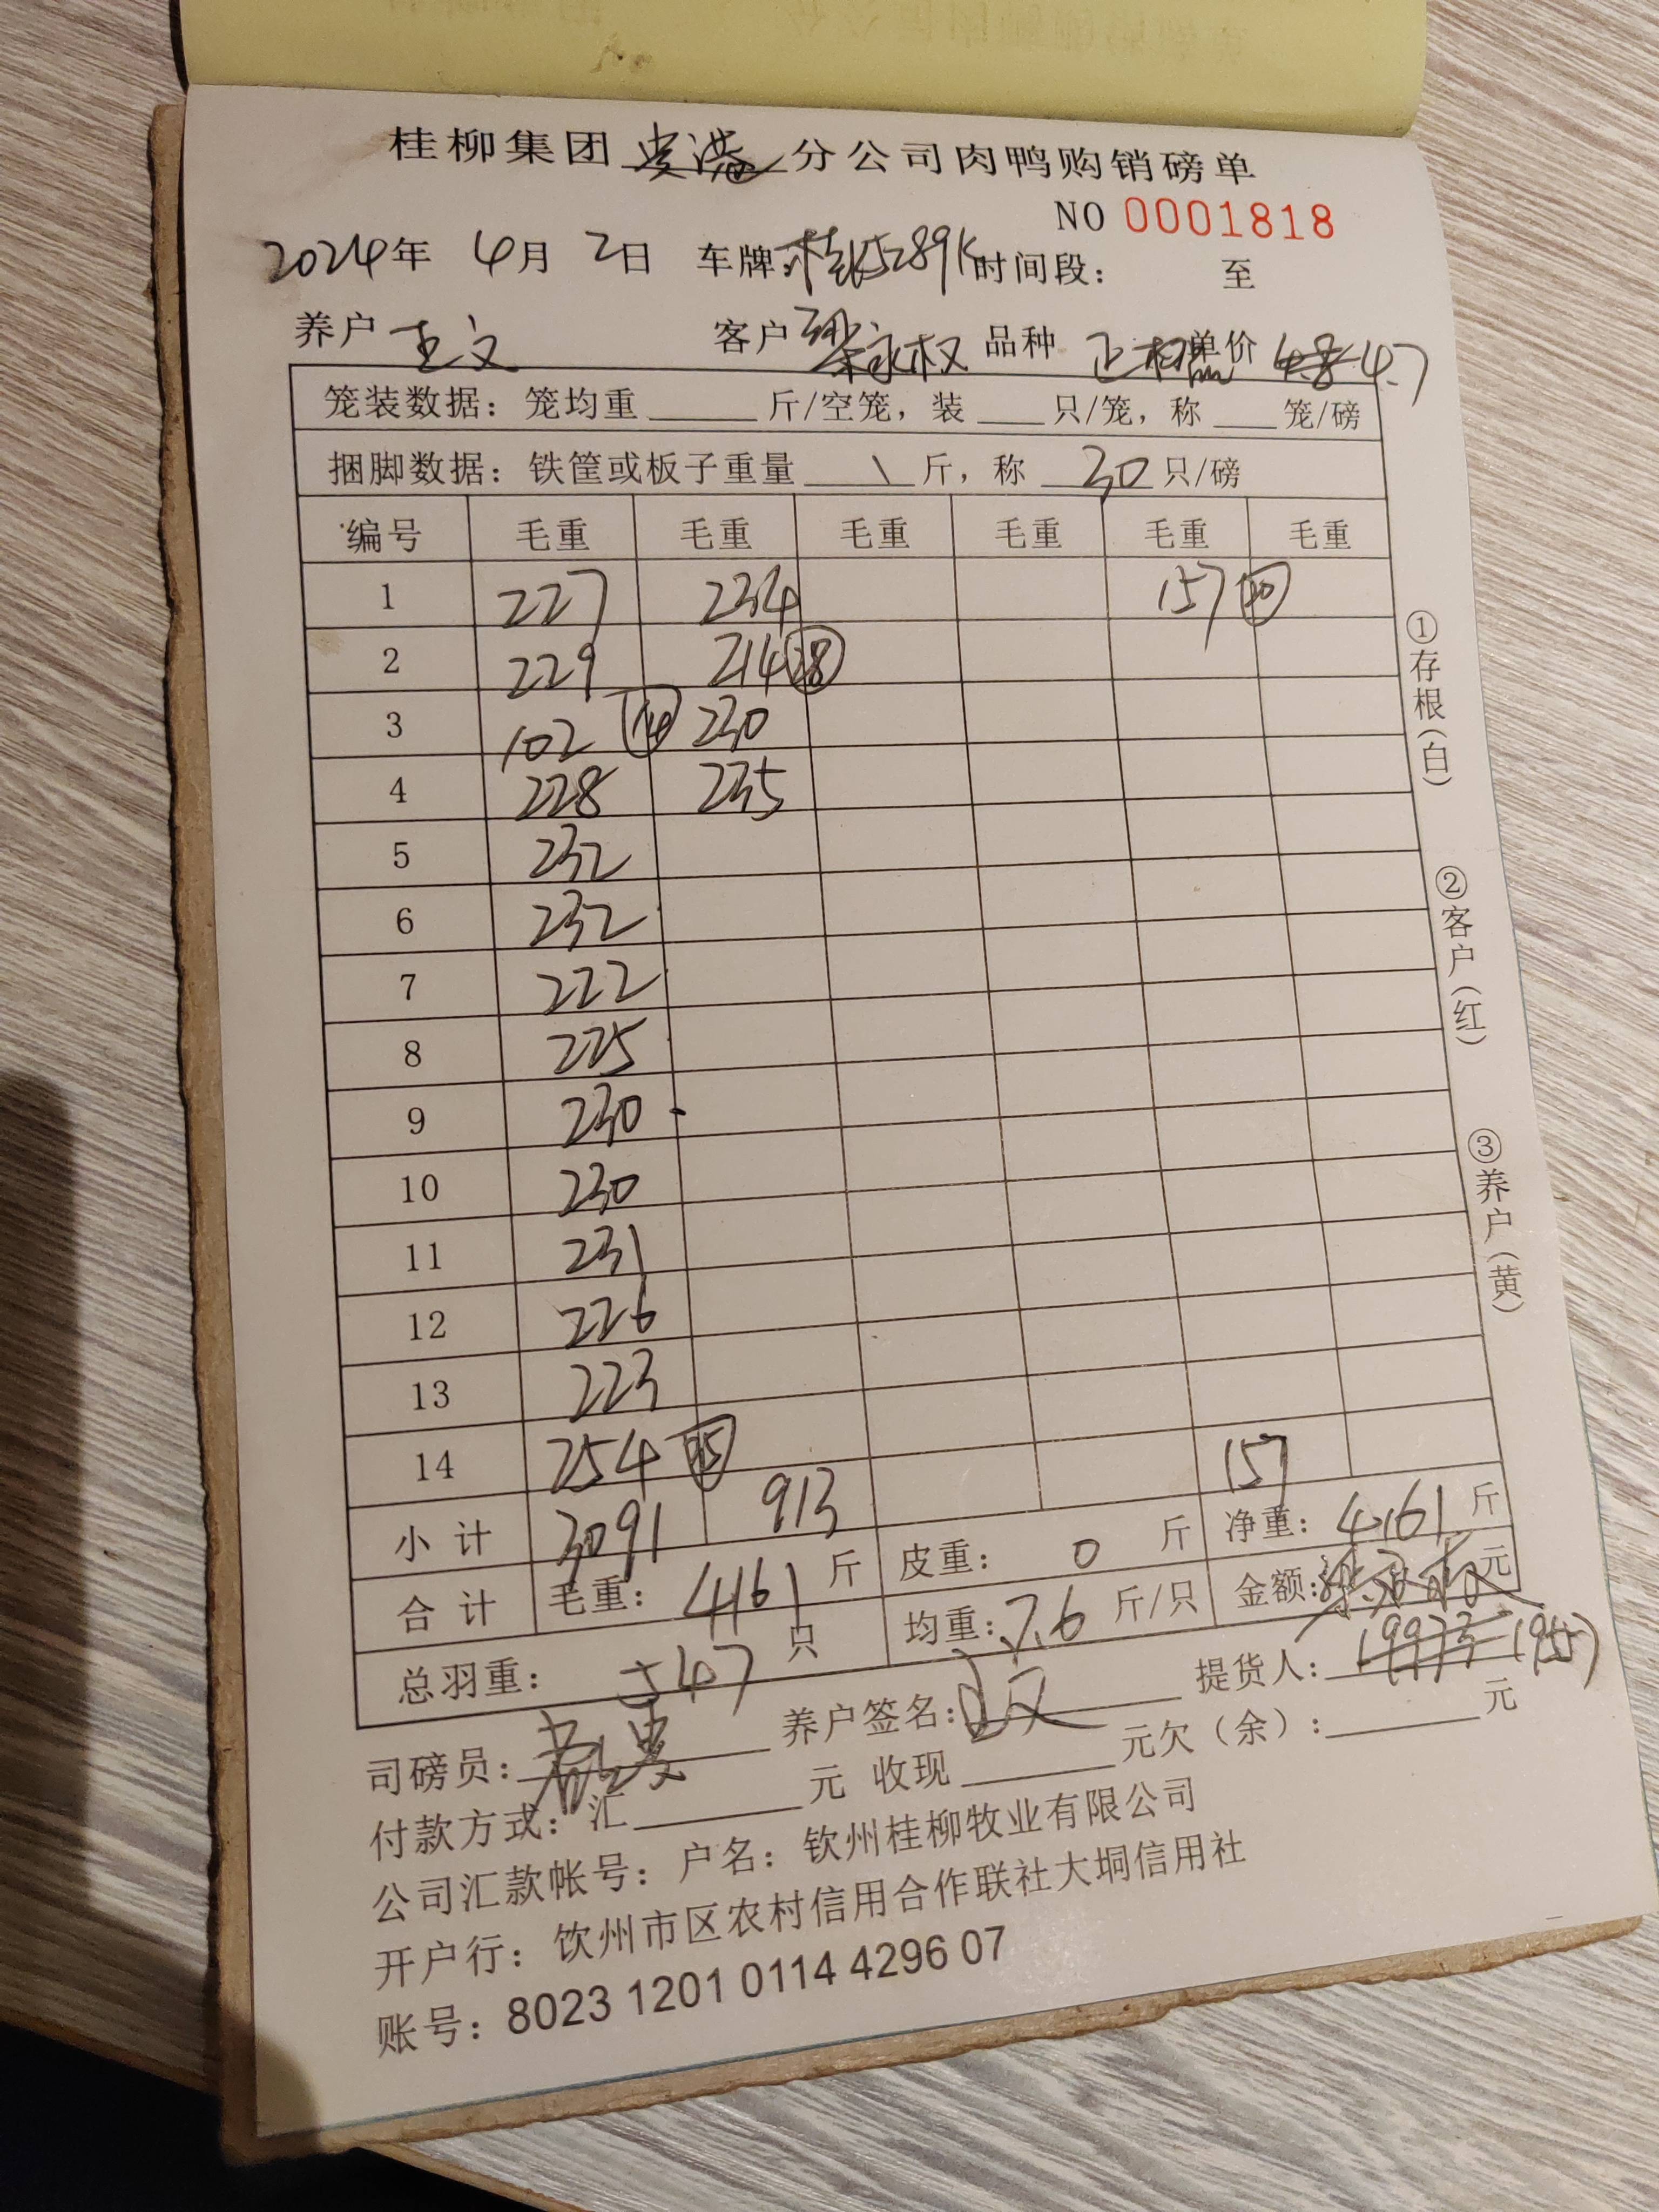 桂柳集团贵港分公司肉鸭购销磅单
NO 0001818
2024年 4月 2日 车牌: 桂 5289K 时间段: 至
养户 王文 客户 梁永权 品种 正 单价 4.8 4.7
笼装数据: 笼均重 斤/空笼, 装 只/笼, 称 笼/磅
捆脚数据: 铁筐或板子重量 \ 斤, 称 30 只/磅
编号 毛重 毛重 毛重 毛重 毛重 毛重
1 227 234 157 20
2 229 214 28
3 102 14 230
4 228 235
5 232
6 232
7 222
8 225
9 230
10 230
11 231
12 226
13 223
14 254 35 157
小计 3091 913
合计 毛重: 4161 斤 皮重: 0 斤 净重: 4161 斤
总羽重: 547 只 均重: 7.6 斤/只 金额: 元
司磅员: 养户签名: 王文 提货人: 19973 19557
付款方式: 汇 元 收现 元欠(余): 元
公司汇款帐号: 户名: 钦州桂柳牧业有限公司
开户行: 饮州市区农村信用合作联社大垌信用社
账号: 8023 1201 0114 4296 07
①存根(白) ②客户(红) ③养户(黄)